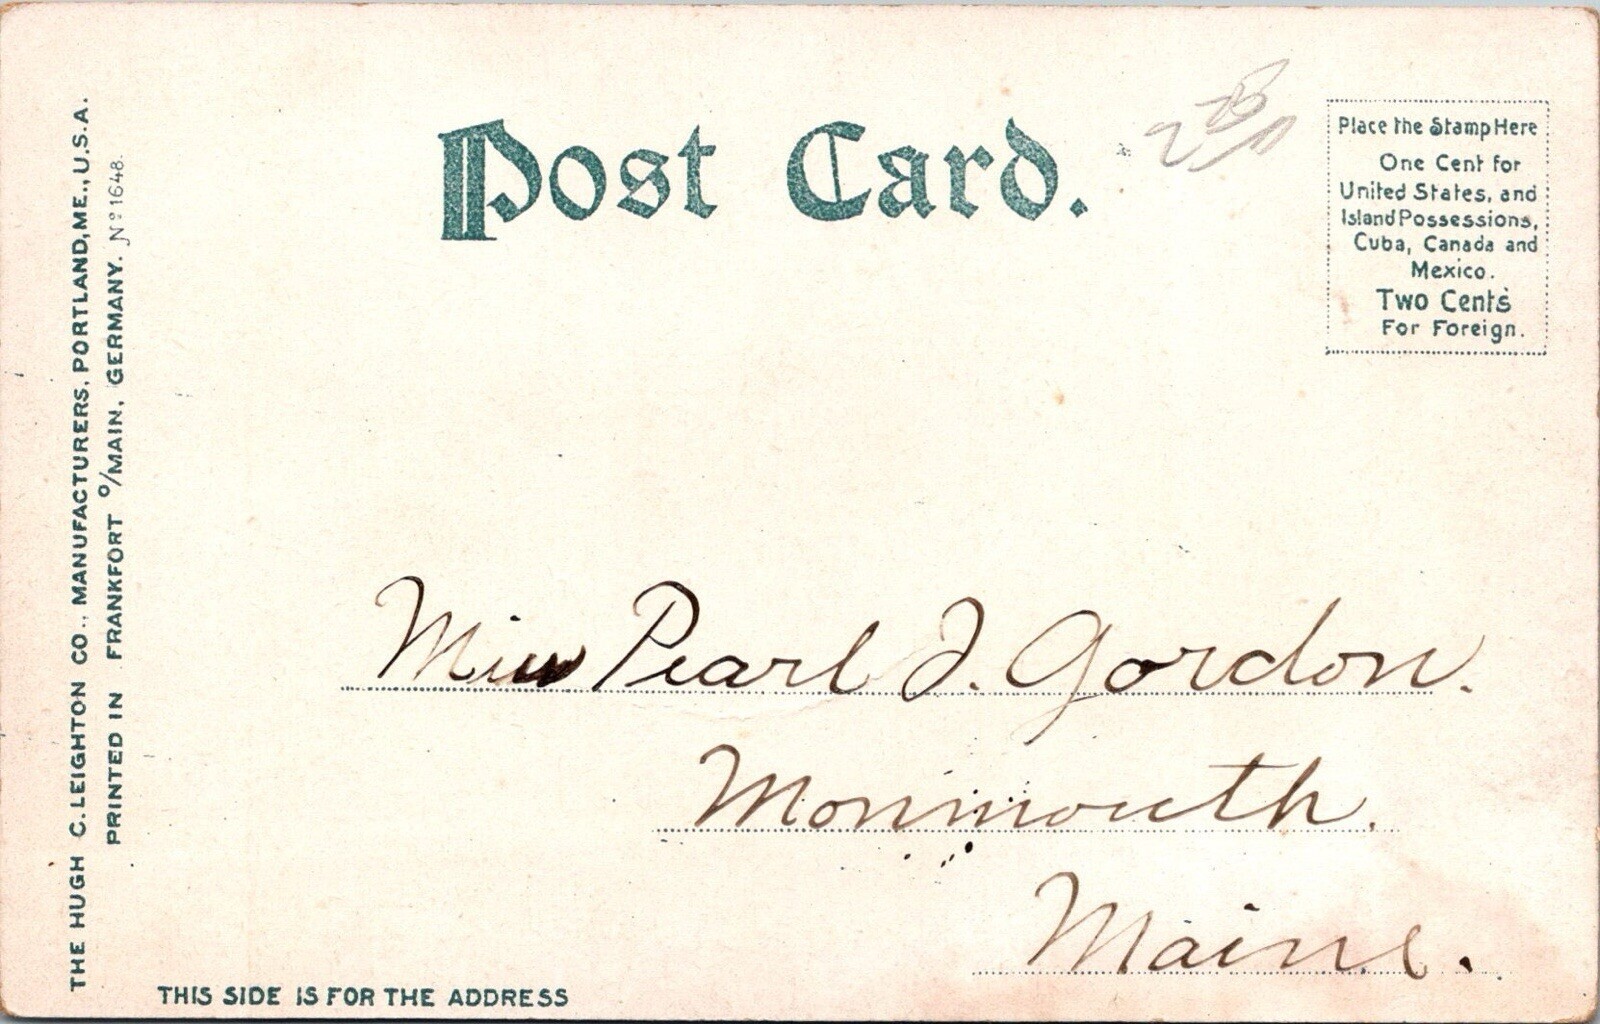 Post Card.
Place the Stamp Here
One Cent for
United States, and
Island Possessions,
Cuba, Canada and
Mexico.
Two Cents
For Foreign.
THE HUGH C. LEIGHTON CO., MANUFACTURERS, PORTLAND, ME., U.S.A.
PRINTED IN FRANKFORT o/MAIN, GERMANY. No 1648.
Miss Pearl J. Gordon.
Monmouth.
Maine.
THIS SIDE IS FOR THE ADDRESS